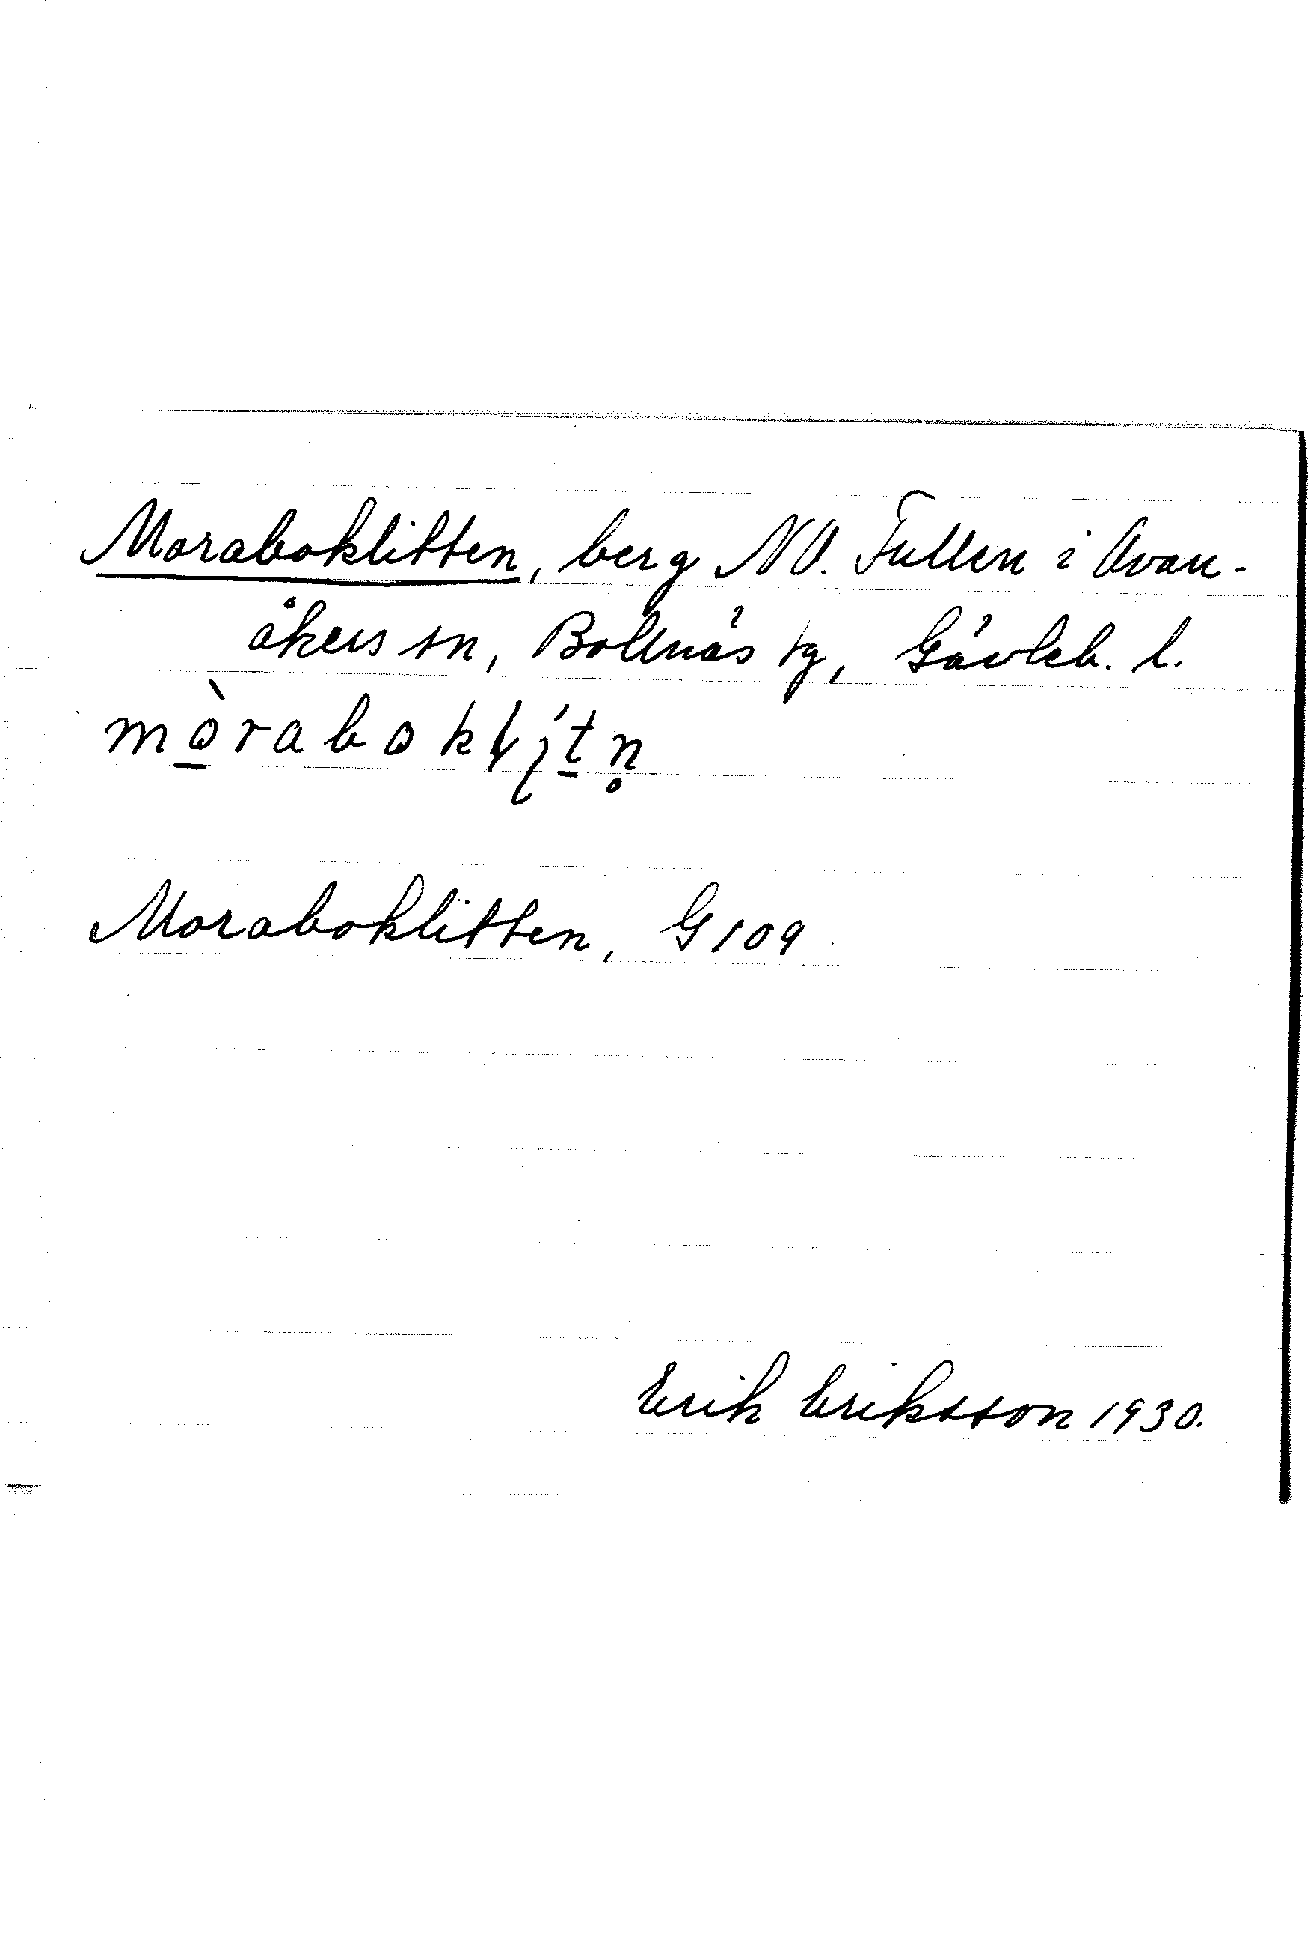 Moraboklitten, berg NO. Tullen i Ovan-
åkers sn, Bollnäs tg, Gävleb. l.
Moraboklitten, G 109
Erik Eriksson 1930.